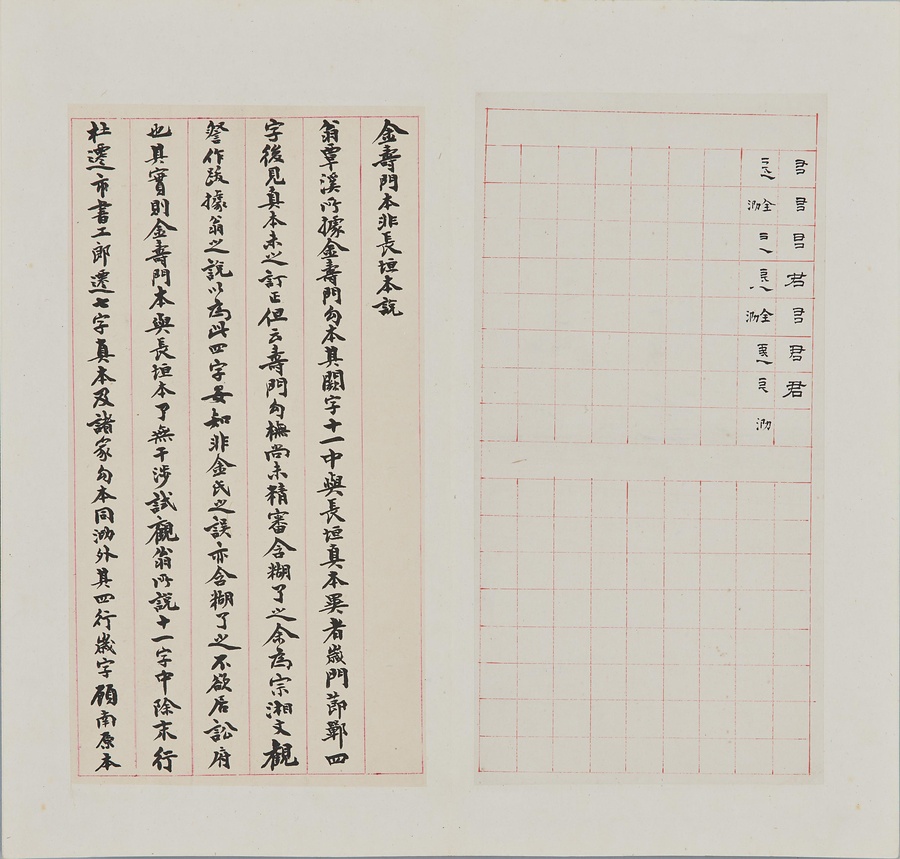 君
君
君
君
君
君
君
全泐
全泐
泐
金壽門本非長垣本說
翁覃溪所據金壽門勾本其闕字十一中與長垣真本異者歲門節鄿四
字後見真本未之訂正但云壽門勾橅尚未精審含糊了之余為宗湘文觀
詧作跋據翁之說以為此四字妄知非金氏之誤亦含糊了之不欲居訟府
也其實則金壽門本與長垣本了無干涉試觀翁所說十一字中除末行
杜遷市書工郎遷七字真本及諸家勾本同泐外其四行歲字顧南原本